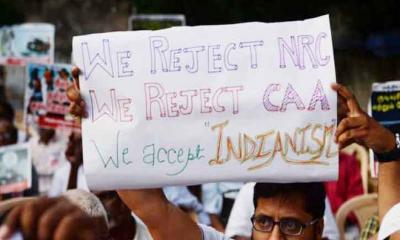 We REJECT NRC
We REJECT CAA
We accept "INDIANISM"